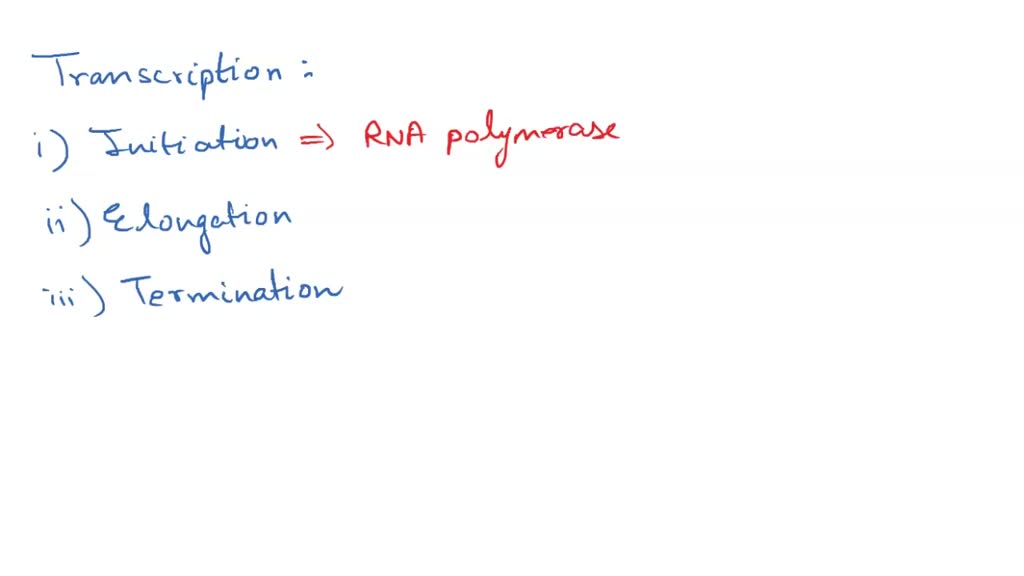 Transcription :
i) Initiation ⇒ RNA polymerase
ii) Elongation
iii) Termination